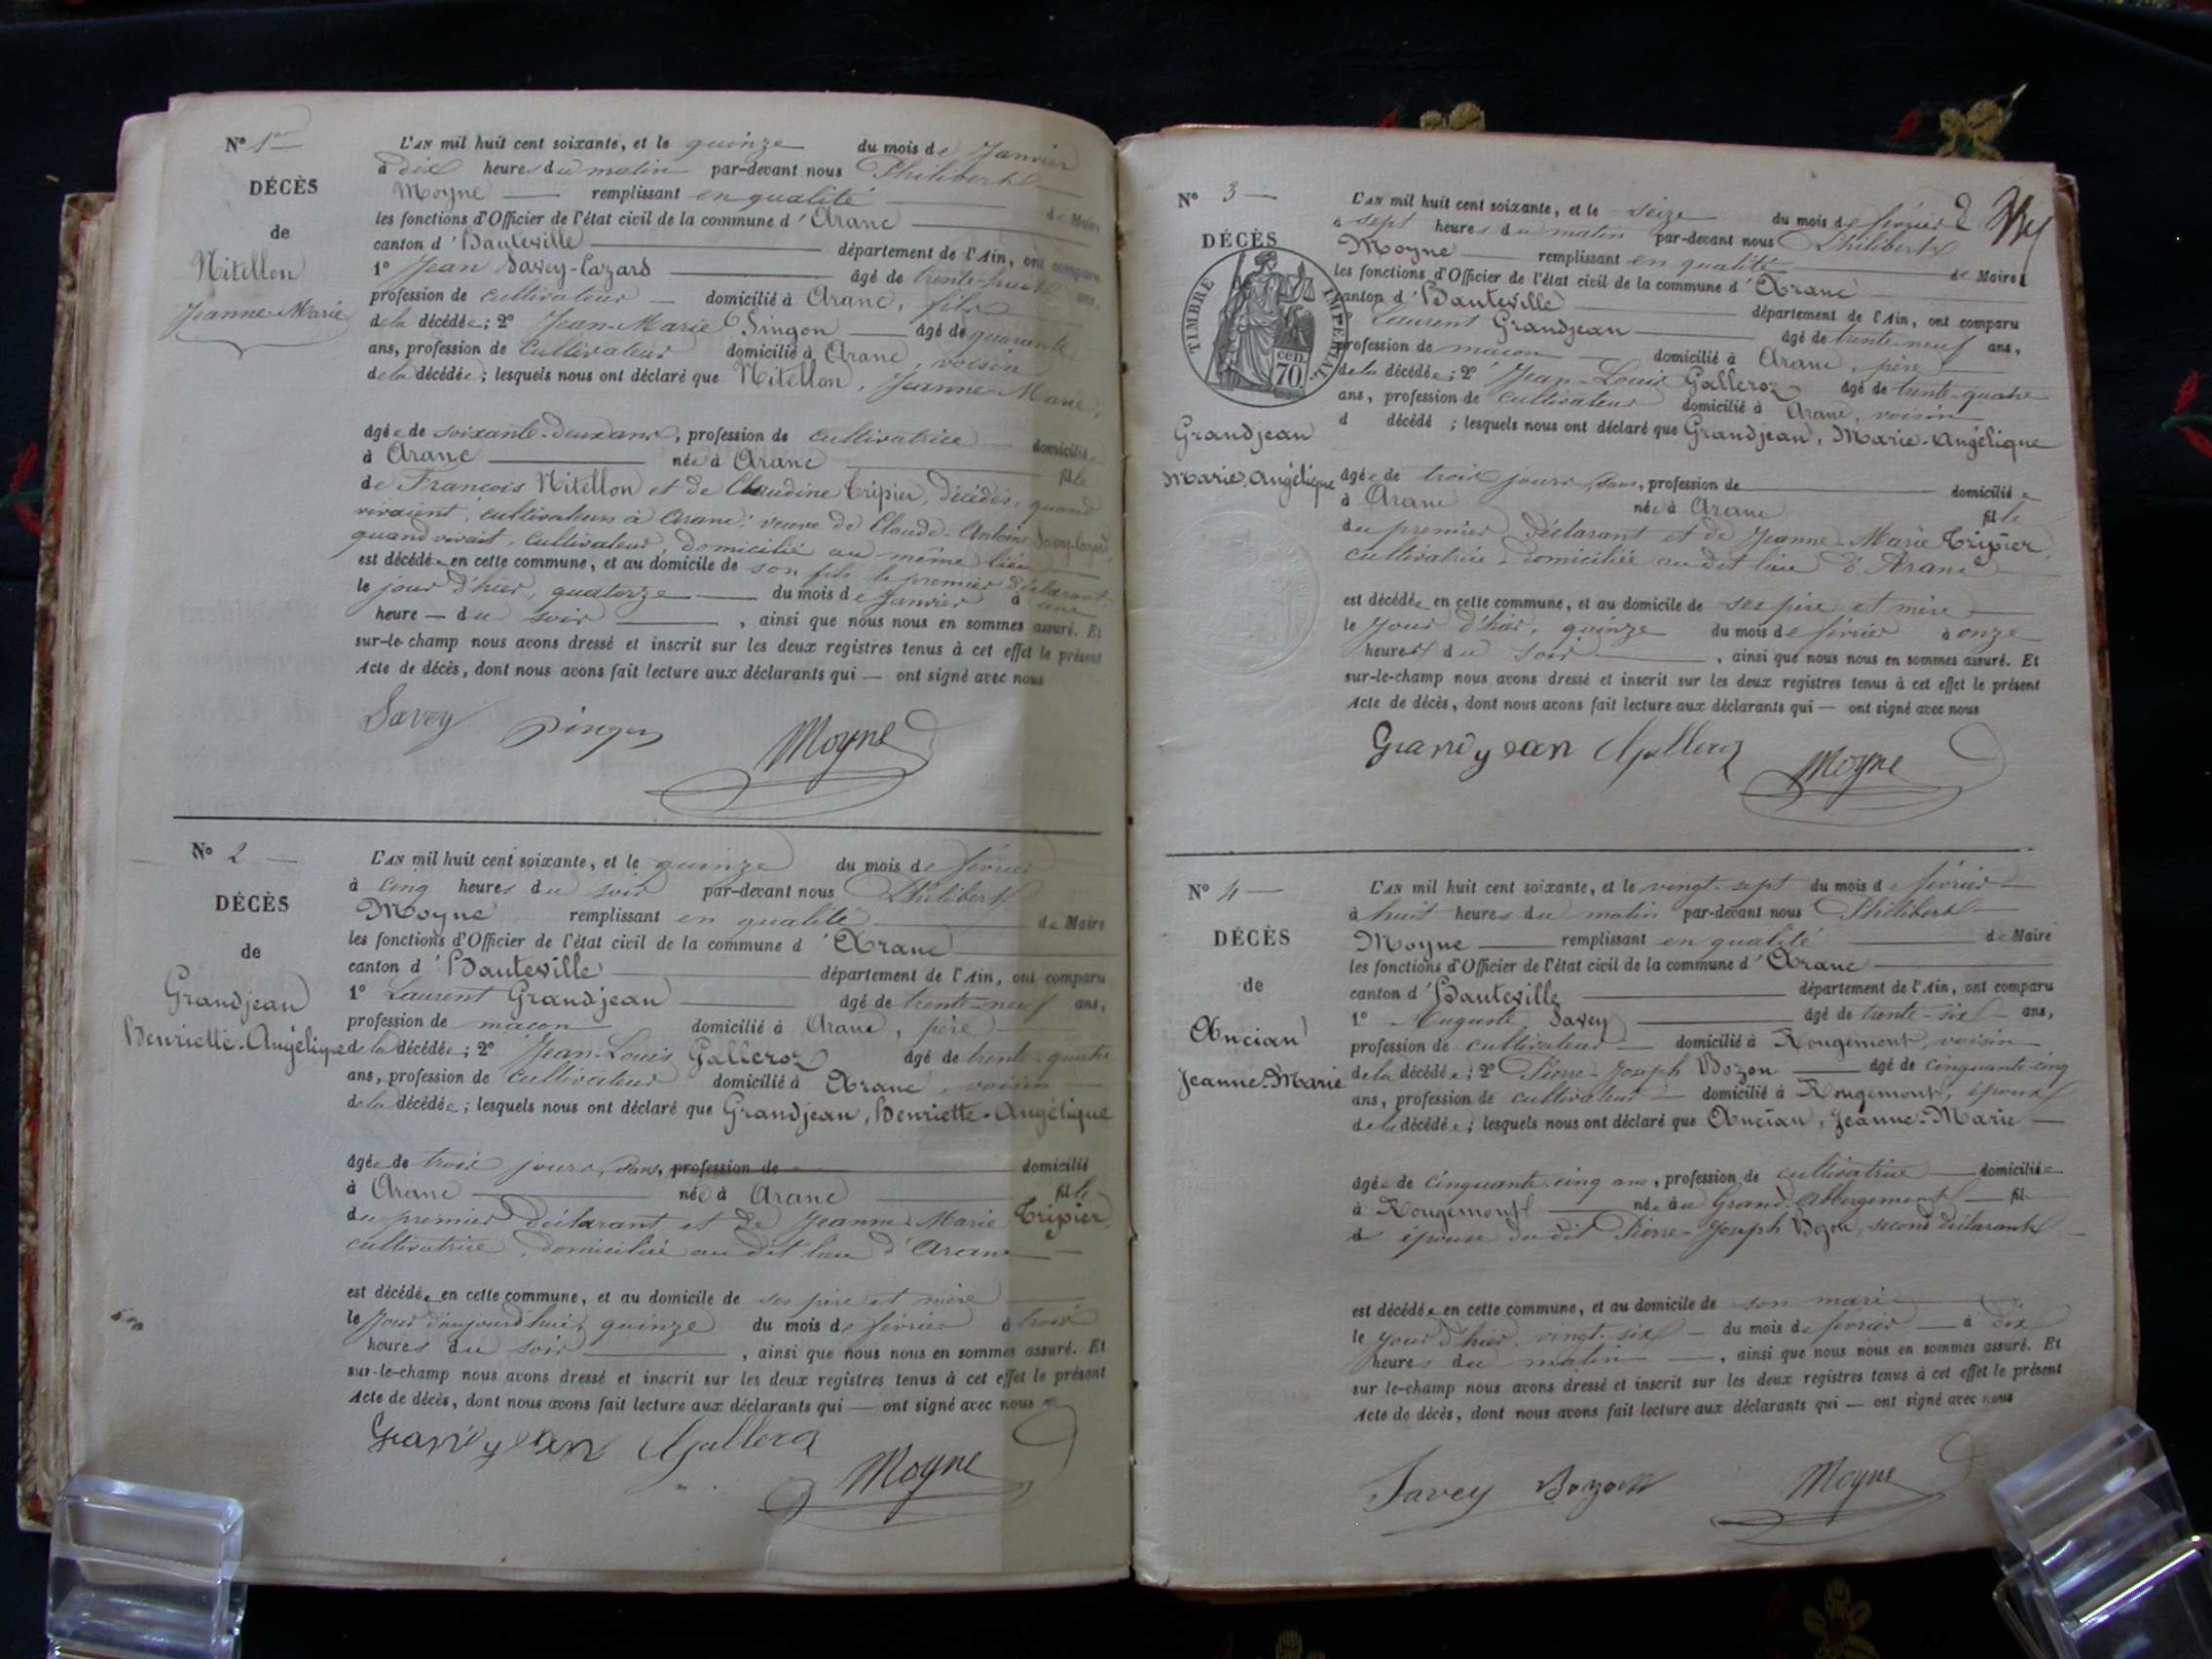 N° 1er
DÉCÈS
de
Nitellon
Jeanne-Marie
L'AN mil huit cent soixante, et le quinze du mois de Janvier
à dix heures du matin par-devant nous Philibert
Moyne remplissant en qualité de Maire
les fonctions d'Officier de l'état civil de la commune d'Aranc
canton d'Hauteville département de l'Ain, ont comparu
1° Jean Savey-Cazard âgé de trente-huit ans,
profession de cultivateur domicilié à Aranc, fils
de la décédée; 2° Jean-Marie Pingon âgé de quarante
ans, profession de Cultivateur domicilié à Aranc, voisin
de la décédée; lesquels nous ont déclaré que Nitellon, Jeanne-Marie,
âgée de soixante-deux ans, profession de cultivatrice domiciliée
à Aranc née à Aranc fille
de François Nitellon et de Claudine Tripier, décédés, quand
vivaient, cultivateurs à Aranc; veuve de Claude-Antoine Savey-Cazard
quand vivait, cultivateur, domicilié au même lieu
est décédée en cette commune, et au domicile de son fils le premier déclarant
le jour d'hier, quatorze du mois de Janvier à une
heure du soir, ainsi que nous nous en sommes assuré. Et
sur-le-champ nous avons dressé et inscrit sur les deux registres tenus à cet effet le présent
Acte de décès, dont nous avons fait lecture aux déclarants qui — ont signé avec nous
Savey Pingon Moyne
N° 2
DÉCÈS
de
Grandjean
Henriette-Angélique
L'AN mil huit cent soixante, et le quinze du mois de février
à cinq heures du soir par-devant nous Philibert
Moyne remplissant en qualité de Maire
les fonctions d'Officier de l'état civil de la commune d'Aranc
canton d'Hauteville département de l'Ain, ont comparu
1° Laurent Grandjean âgé de trente-neuf ans,
profession de maçon domicilié à Aranc, père
de la décédée; 2° Jean-Louis Galleroz âgé de trente-quatre
ans, profession de cultivateur domicilié à Aranc, voisin
de la décédée; lesquels nous ont déclaré que Grandjean, Henriette-Angélique
âgée de trois jours, sans, profession de domicilié
à Aranc née à Aranc fille
du premier déclarant et de Jeanne-Marie Tripier,
cultivatrice, domiciliée au dit lieu d'Aranc
est décédée en cette commune, et au domicile de ses père et mère
le jour d'aujourd'hui, quinze du mois de février à trois
heures du soir, ainsi que nous nous en sommes assuré. Et
sur-le-champ nous avons dressé et inscrit sur les deux registres tenus à cet effet le présent
Acte de décès, dont nous avons fait lecture aux déclarants qui — ont signé avec nous
Grandjean Galleroz Moyne
N° 3
DÉCÈS
TIMBRE IMPÉRIAL
cen.
70
Grandjean
Marie-Angélique
L'AN mil huit cent soixante, et le seize du mois de février 2
à sept heures du matin par-devant nous Philibert
Moyne remplissant en qualité de Maire
les fonctions d'Officier de l'état civil de la commune d'Aranc
canton d'Hauteville département de l'Ain, ont comparu
Laurent Grandjean âgé de trente-neuf ans,
profession de maçon domicilié à Aranc, père
de la décédée; 2° Jean-Louis Galleroz âgé de trente-quatre
ans, profession de cultivateur domicilié à Aranc, voisin
d décédé ; lesquels nous ont déclaré que Grandjean, Marie-Angélique
âgée de trois jours, sans, profession de domiciliée
à Aranc née à Aranc fille
du premier déclarant et de Jeanne-Marie Tripier,
cultivatrice, domiciliée au dit lieu d'Aranc
est décédée en cette commune, et au domicile de ses père et mère
le jour d'hier, quinze du mois de février à onze
heures du soir, ainsi que nous nous en sommes assuré. Et
sur-le-champ nous avons dressé et inscrit sur les deux registres tenus à cet effet le présent
Acte de décès, dont nous avons fait lecture aux déclarants qui — ont signé avec nous
Grandjean Galleroz Moyne
N° 4
DÉCÈS
de
Ancian
Jeanne-Marie
L'AN mil huit cent soixante, et le vingt-sept du mois de février
à huit heures du matin par-devant nous Philibert
Moyne remplissant en qualité de Maire
les fonctions d'Officier de l'état civil de la commune d'Aranc
canton d'Hauteville département de l'Ain, ont comparu
1° Auguste Savey âgé de trente-six ans,
profession de cultivateur domicilié à Rougemont, voisin
de la décédée; 2° Pierre-Joseph Bozon âgé de cinquante-cinq
ans, profession de cultivateur domicilié à Rougemont, époux
de la décédée; lesquels nous ont déclaré que Ancian, Jeanne-Marie
âgée de cinquante-cinq ans, profession de cultivatrice domiciliée
à Rougemont née au Grand-Abbergement fil
d épouse du dit Pierre-Joseph Bozon, second déclarant
est décédée en cette commune, et au domicile de son mari
le jour d'hier, vingt-six du mois de février à dix
heures du matin, ainsi que nous nous en sommes assuré. Et
sur le-champ nous avons dressé et inscrit sur les deux registres tenus à cet effet le présent
Acte de décès, dont nous avons fait lecture aux déclarants qui — ont signé avec nous
Savey Bozon Moyne